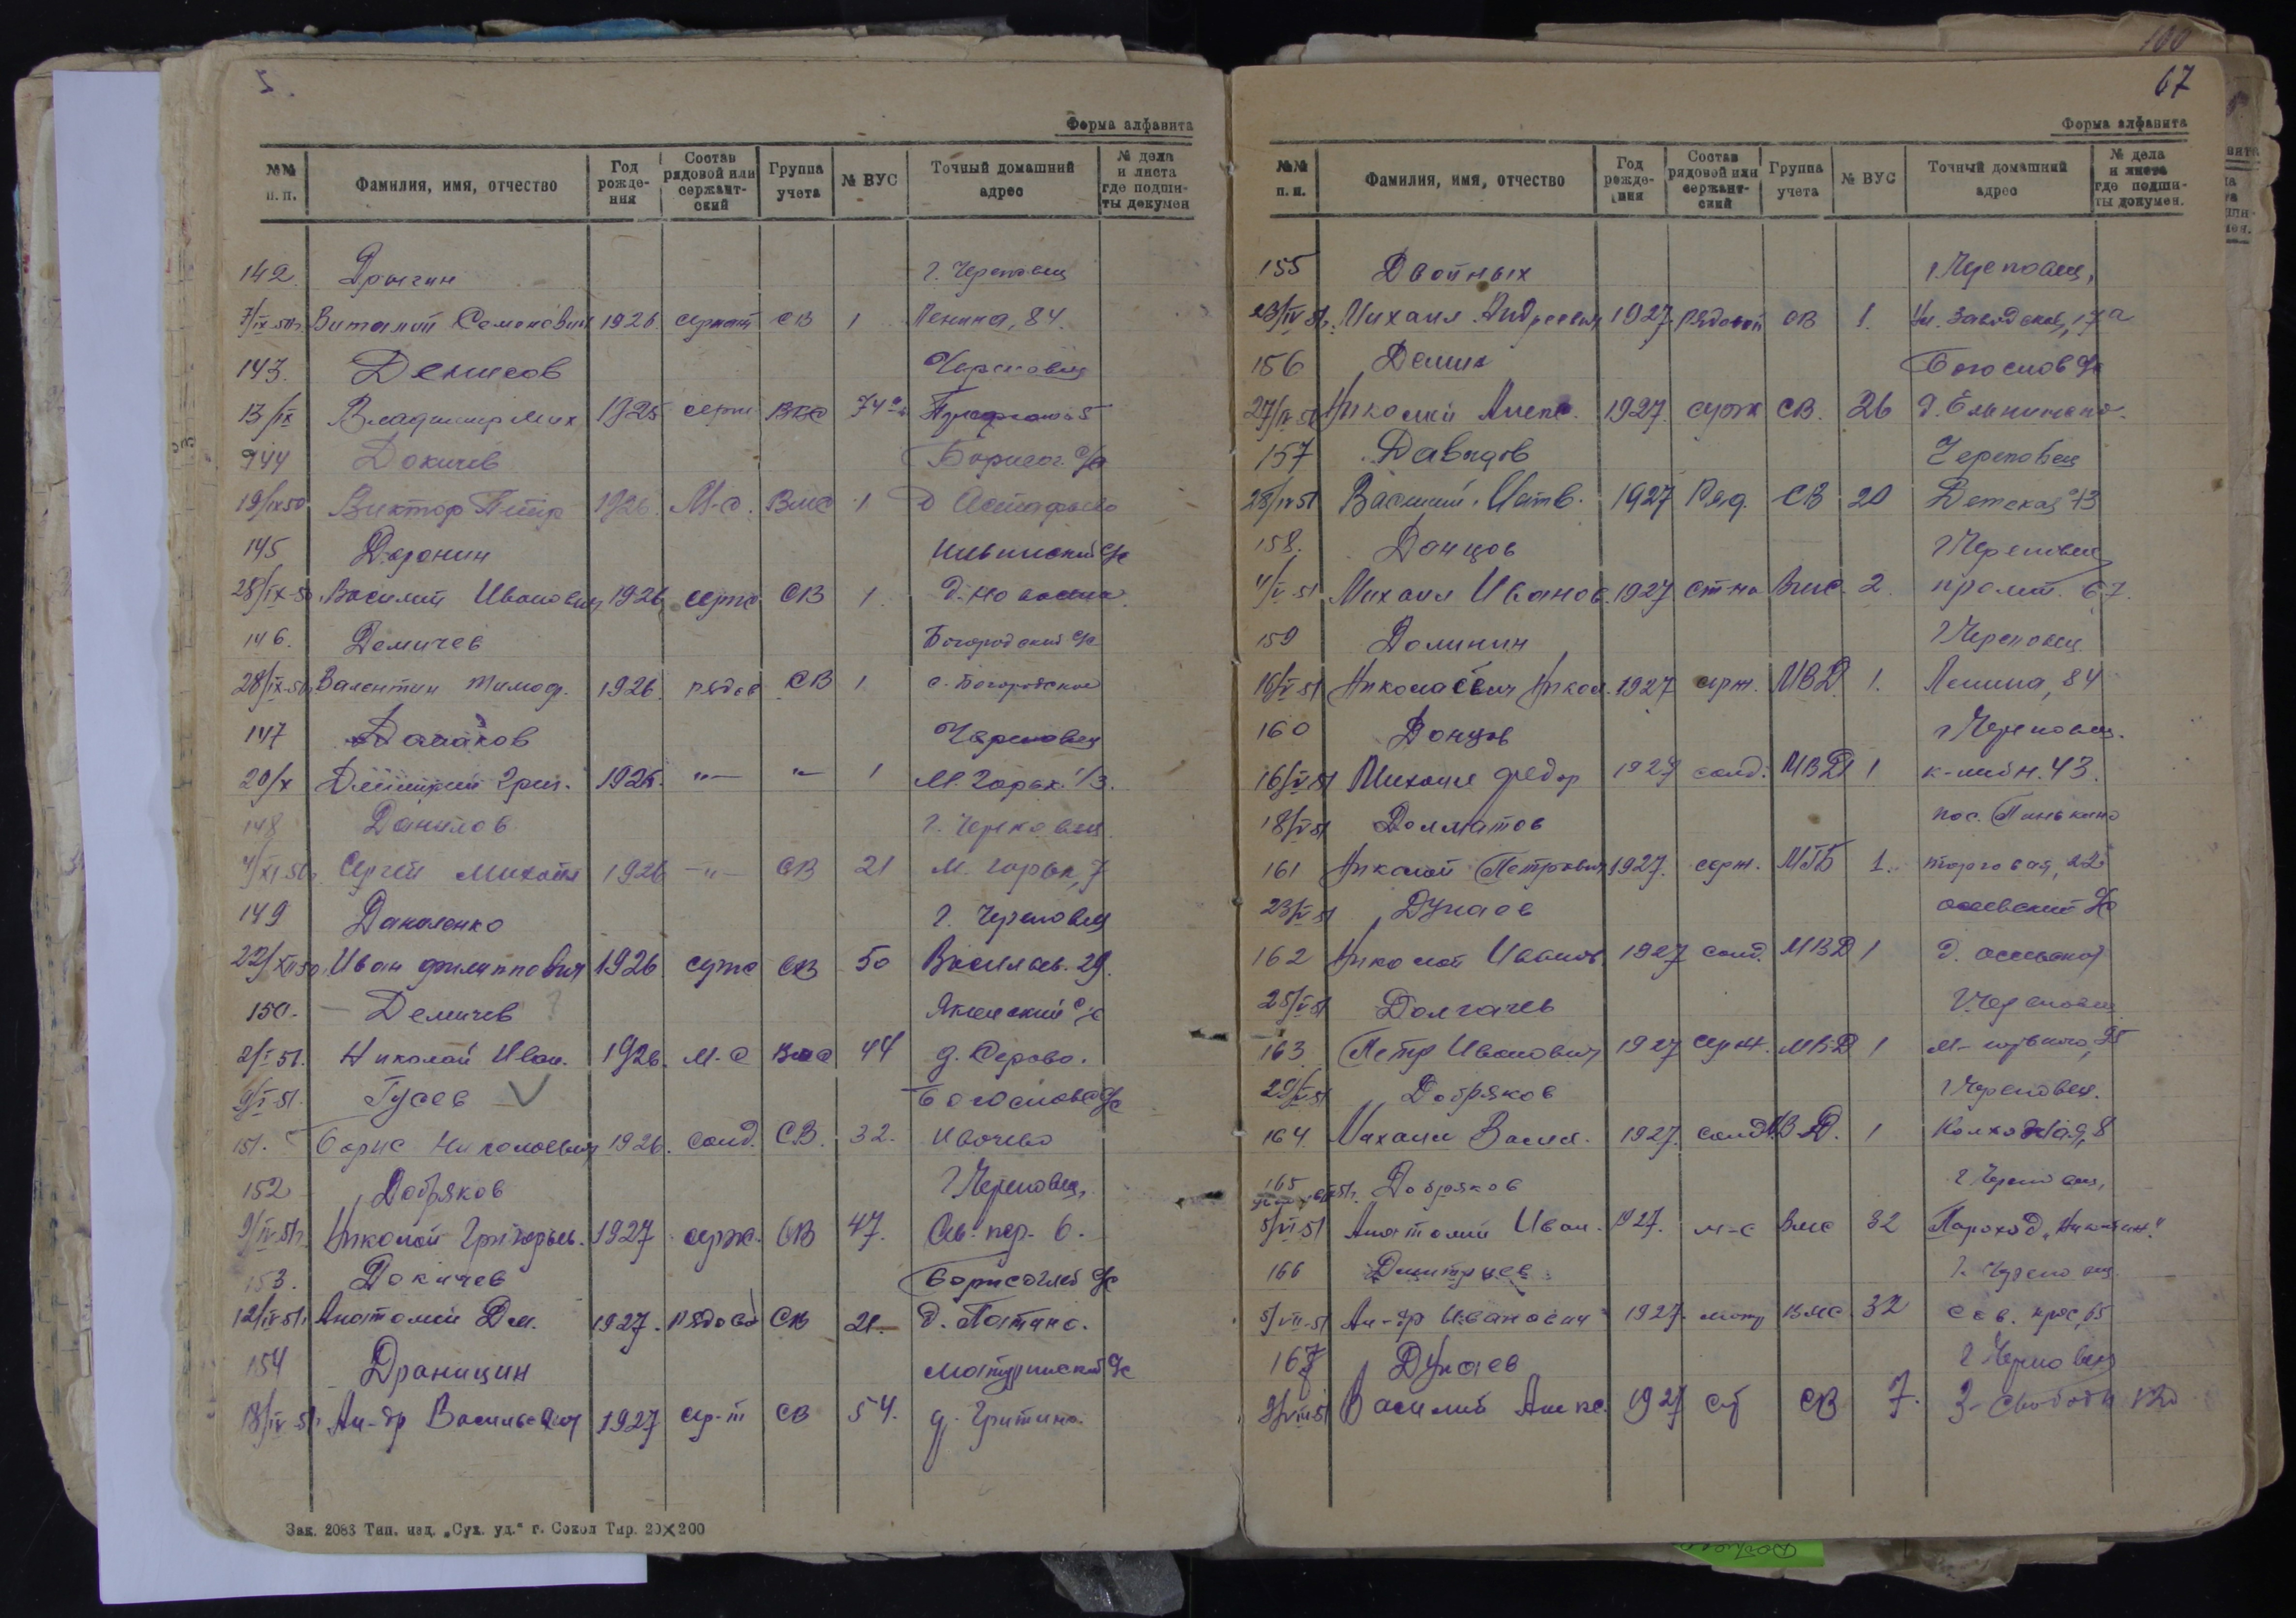 Форма алфавита
№№ п. п. Фамилия, имя, отчество Год рожде- ния Состав рядовой или сержант- ский Группа учета № ВУС Точный домашний адрес № дела и листа где подши- ты докумен
142. Дрыгин г. Череповец
7/IX-50г. Виталий Семенович 1926 сержант СВ 1 Ленина, 84.
143. Денисов Череповец
13/IX Владимир Мих 1925 серж 74
144 Докичев Борисог. с/с
19/IX50 Виктор Петр 1926. М-с. Вмс 1 д Астафьево
145 Доронин с/с
28/IX-50 Василий Иванович 1926 серж СВ 1. д.
146. Демичев Богородский с/с
28/IX-50г Валентин Тимоф. 1926. рядов СВ 1 с. Богородское
147 Череповец
20/X Дмитрий Григ. 1926. -"- -"- 1 М. Горьк. 1/3.
148 Данилов г. Череповец.
4/XI-50г. Сергей Михайл 1926 -"- СВ 21 М. Горьк, 7
149 Даниленко г. Череповец
22/XII50 Иван Филиппович 1926 серж СВ 50 Васильев. 29.
150. – Демичев ? с/с
2/I-51. Николай Иван. 1926. М-с Вмс 44 д. Серово.
9/I-51. Гусев V Богословс с/с
151. Борис Николаевич 1926. солд. С.В. 32. Ивачево
152 Добряков г Череповец,
9/IV-51г. Николай Григорьев. 1927 серж. СВ 47. пер. 6.
153. Докичев Борисоглеб с/с
12/IV-51г. Анатолий Дм. 1927. рядов СВ 21. д. Патино.
154 Драницин Матуринский с/с
18/IV-51г. Ал-др Васильевич 1927 сер-т СВ 54. д. Гритино.
Зак. 2083 Тип. изд. „Сух. уд.“ г. Сокол Тир. 20×200
100
67
Форма алфавита
№№ п. п. Фамилия, имя, отчество Год рожде- ния Состав рядовой или сержант- ский Группа учета № ВУС Точный домашний адрес № дела и листа где подши- ты докумен.
155 Двойных г Череповец,
23/IV 51г. Михаил Андреевич 1927. рядовой СВ 1. Ул. Заводская, 17а
156 Демин Богослов с/с
27/IV-51 Николай Алекс. 1927. серж СВ. 26 д.
157 Давыдов Череповец
28/IV51 Василий Матв. 1927 Ряд. СВ 20 Детская 43
158. Данцов г Череповец
4/V-51 Михаил Иванов. 1927 ст-на Вмс. 2. пролет. 67.
159 Долинин г Череповец
16/V-51 Николаевич Никол. 1927 серж. МВД. 1. Ленина, 84
160 Донцов г Череповец.
16/V-51 Михаил Федор 1927 солд. МВД 1 43.
18/V-51 Долматов пос. Панькино
161 Николай Петрович 1927. серж. МГБ 1. торговая, 22
23/V-51 Дунаев с/с
162 Николай Иванов. 1927 солд. МВД 1 д.
25/V-51 Долгачев г. Череповец
163 Петр Иванович 1927 серж. МВД 1
29/V-51 Добряков г Череповец.
164. Михаил Васил. 1927. солд МВД. 1 Колхозная, 8
165 Добряков г Череповец,
5/VI-51 Анатолий Иван. 1927. м-с Вмс 32 Пароход
166 Дмитриев г. Череповец.
5/VII-51 Ал-др Иванович 1927. матр ВМС 32 Сов. прос, 65
167 Дунаев г Череповец
9/VIII-51 Василий Алекс. 1927 СВ 7.